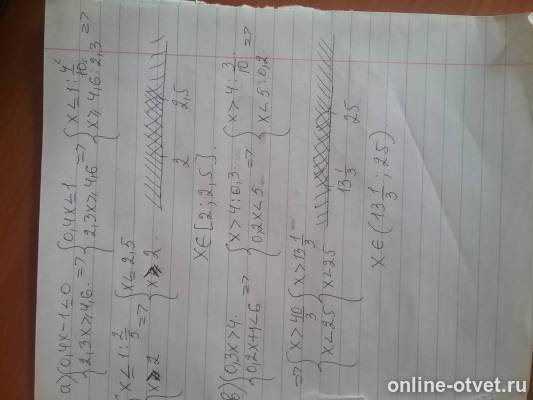 а) {0,4x-1≤0 {2,3x≥4,6 => {0,4x≤1 {2,3x≥4,6 => {x≤1:4/10 {x≥4,6:2,3 =>
{x≤1:2/5 {x≥2 => {x≤2,5 {x≥2
2 2,5
x∈[2;2,5].
в) {0,3x>4 {0,2x+1<6 => {x>4:0,3 {0,2x<5 => {x>4:3/10 {x<5:0,2 =>
=> {x>40/3 {x<25 {x>13 1/3 {x<25
13 1/3 25
x∈(13 1/3; 25)
online-otvet.ru